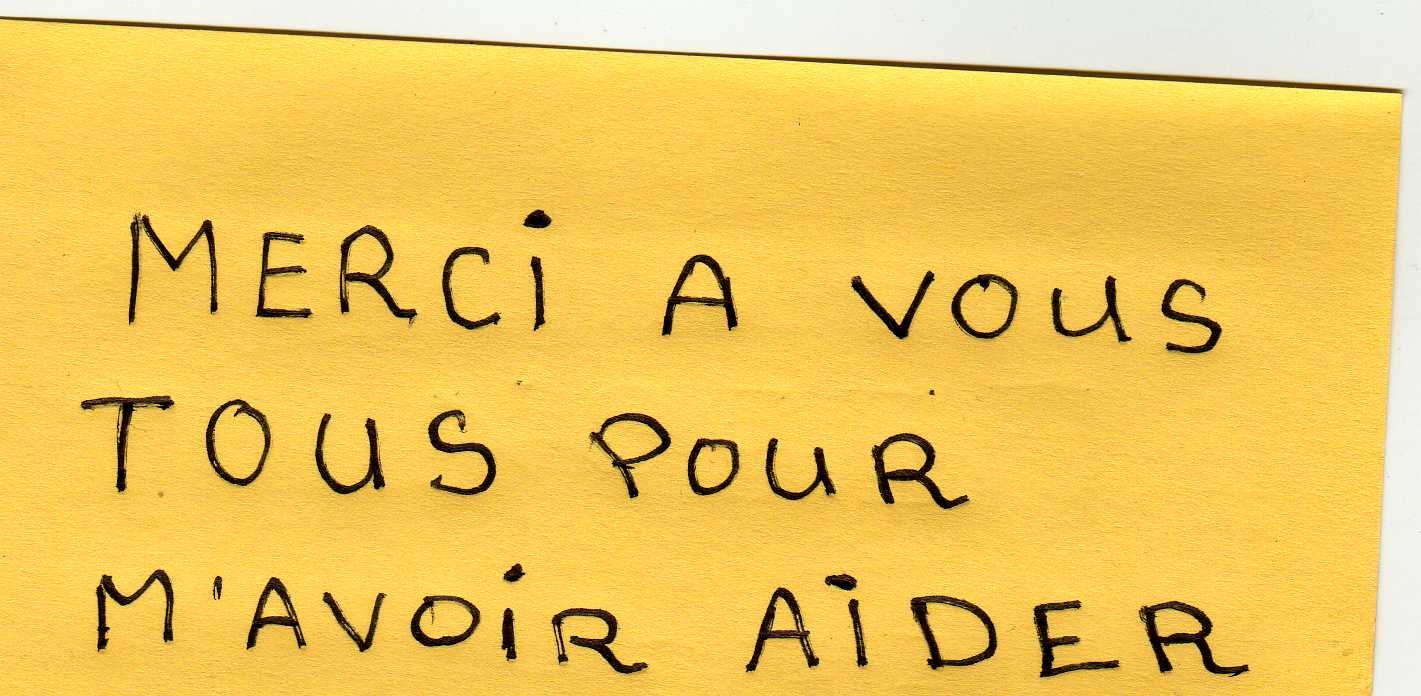 MERCi A VOUS
TOUS POUR
M'AVOiR AiDER